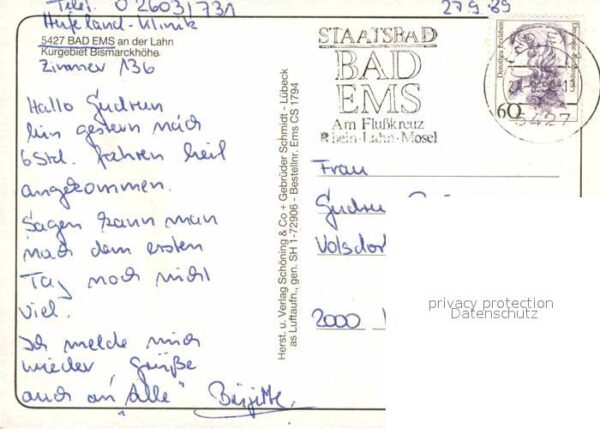 Telef. 02603/731
27.9.89
Hufeland-Klinik
5427 BAD EMS an der Lahn
Kurgebiet Bismarckhöhe
Zimmer 136
Hallo Gudrun
bin gestern nach
6 Std. fahren heil
angekommen.
Sagen kann man
nach dem ersten
Tag noch nicht
viel.
Ich melde mich
wieder, Grüße
auch an "Alle" Brigitte
Herst. u. Verlag Schöning & Co + Gebrüder Schmidt - Lübeck
as Luftaufn., gen. SH 1-72906 - Bestellnr. Ems CS 1794
STAATSBAD
BAD
EMS
Am Flußkreuz
Rhein-Lahn-Mosel
Dorothea Erxleben
60
5427
Frau
Gudrun
Volsdor
2000
privacy protection
Datenschutz